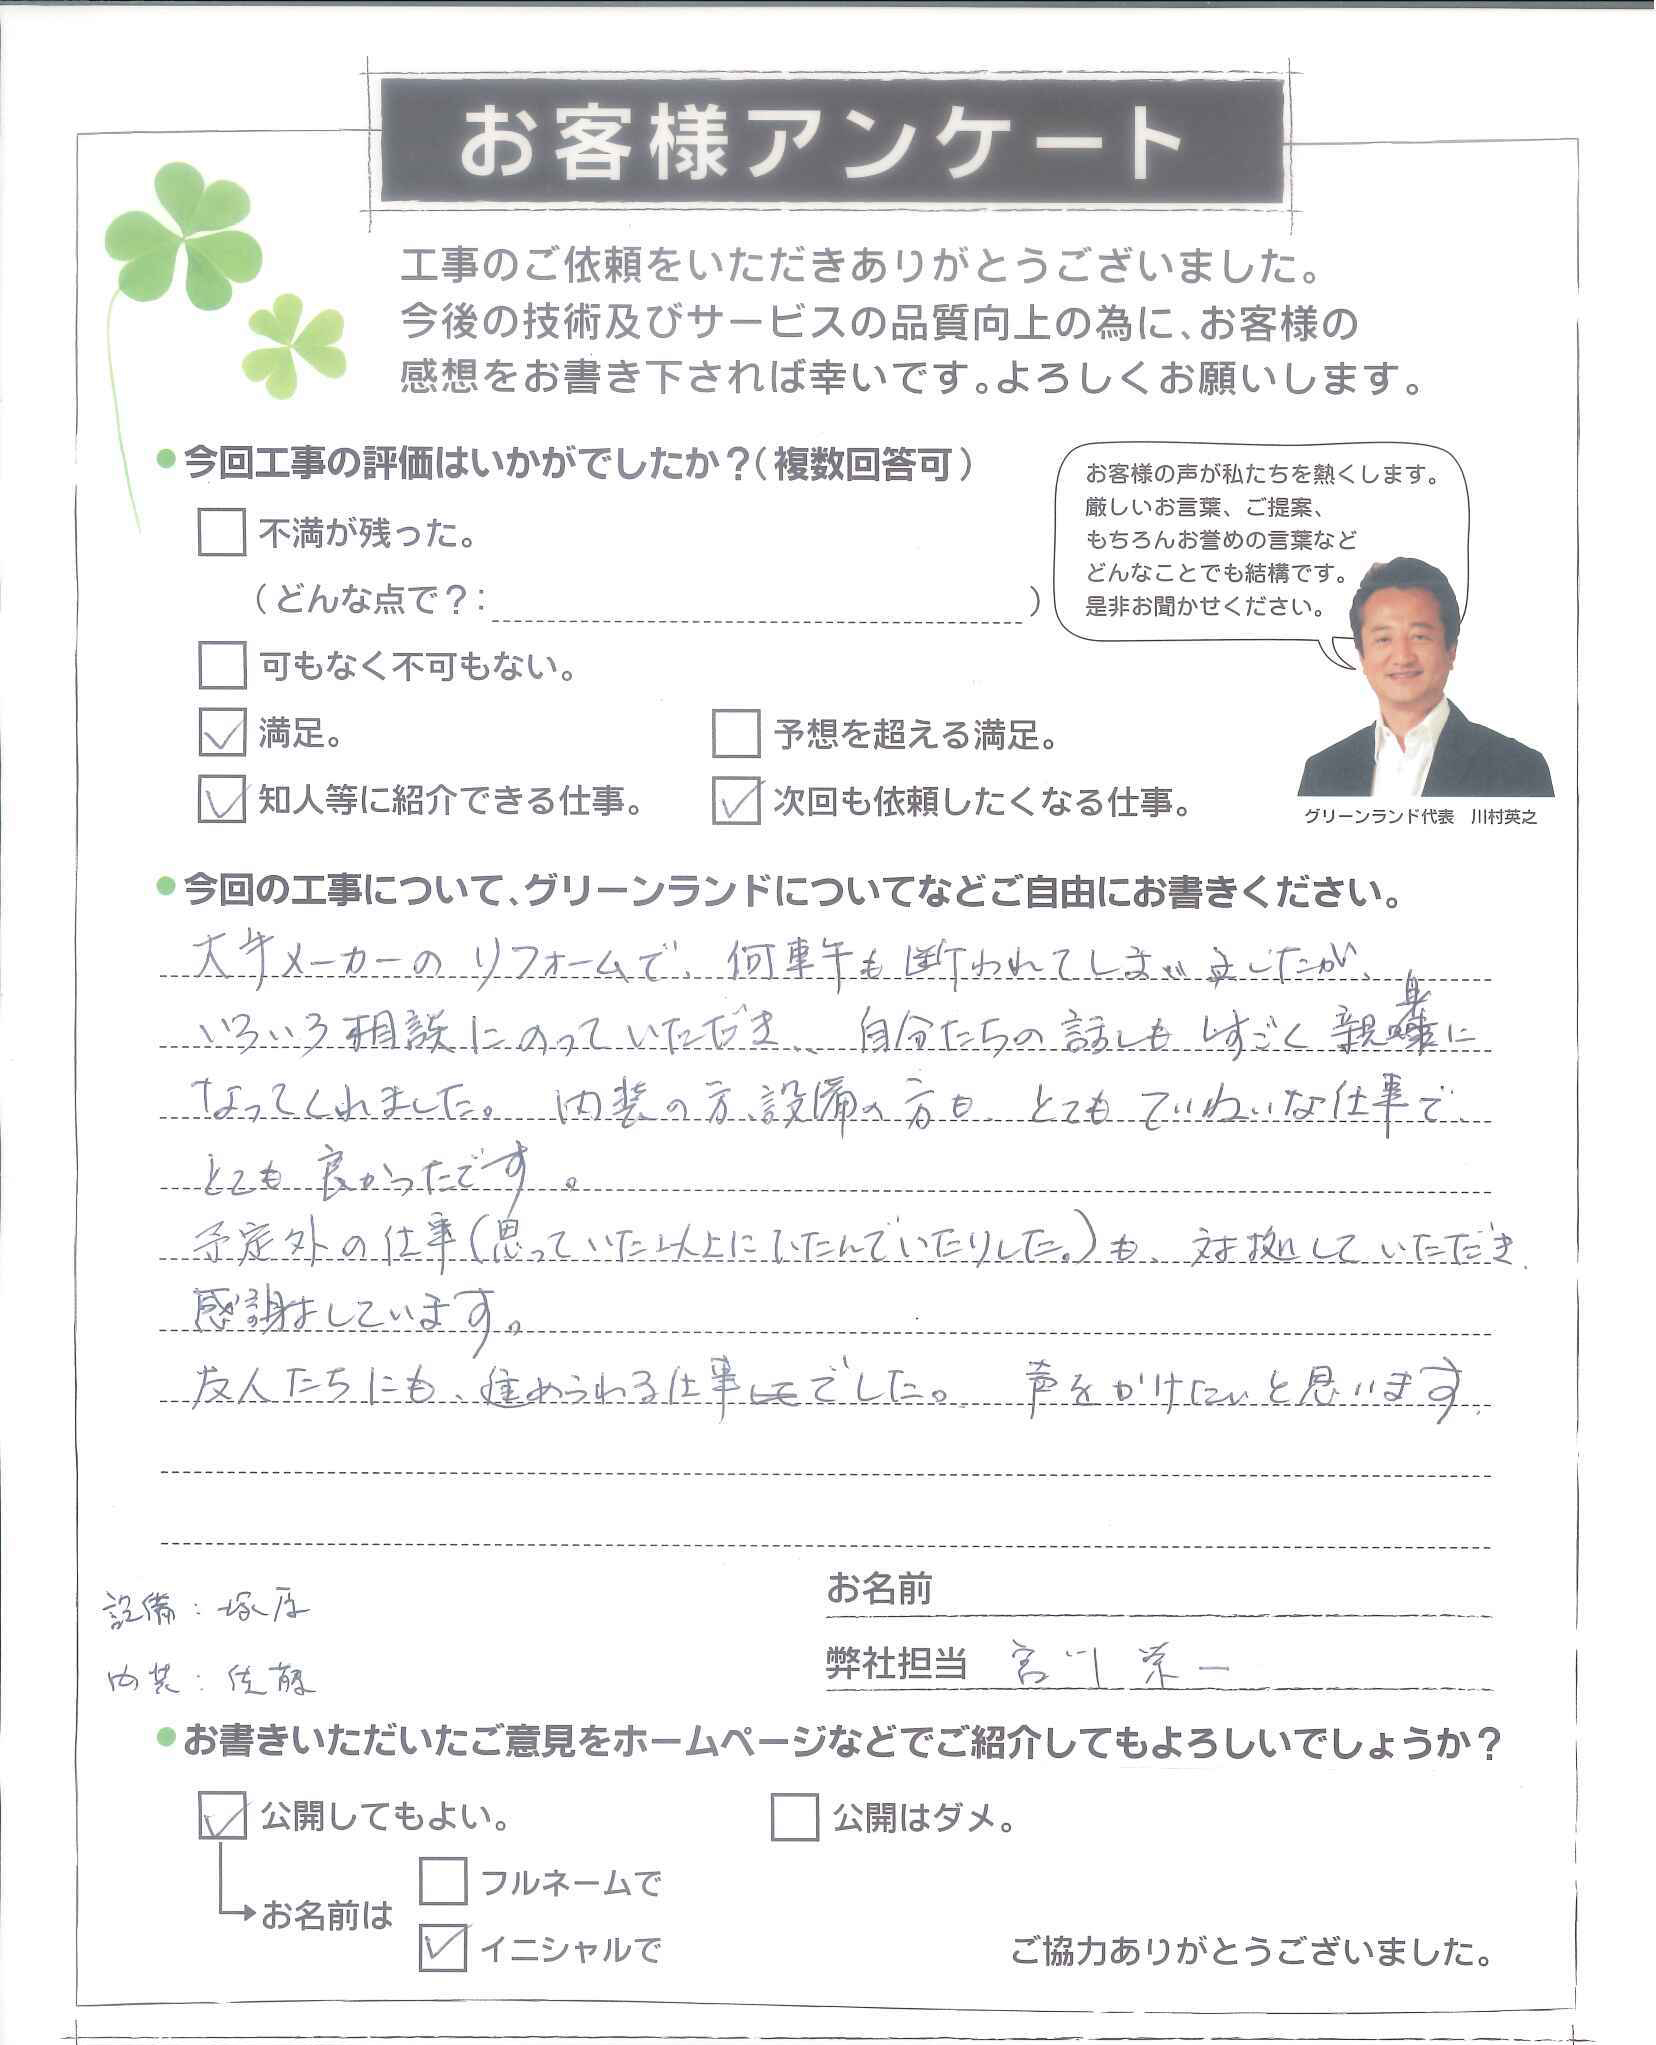 お客様アンケート
工事のご依頼をいただきありがとうございました。
今後の技術及びサービスの品質向上の為に、お客様の
感想をお書き下されば幸いです。よろしくお願いします。
今回工事の評価はいかがでしたか？（複数回答可）
不満が残った。
（どんな点で？：　　）
可もなく不可もない。
満足。
予想を超える満足。
知人等に紹介できる仕事。
次回も依頼したくなる仕事。
お客様の声が私たちを熱くします。
厳しいお言葉、ご提案、
もちろんお誉めの言葉など
どんなことでも結構です。
是非お聞かせください。
グリーンランド代表　川村英之
今回の工事について、グリーンランドについてなどご自由にお書きください。
大手メーカーのリフォームで、何軒も断われてしまいましたが、
いろいろ相談にのっていただき、自分たちの話しもすごく親身に
なってくれました。内装の方、設備の方も、とてもていねいな仕事で、
とても良かったです。
予定外の仕事（思っていた以上にいたんでいたりした。）も、対拠していただき、
感謝しています。
友人たちにも、進められる仕事でした。声をかけたいと思います。
設備：塚原
内装：佐藤
お名前
弊社担当 宮川 栄一
お書きいただいたご意見をホームページなどでご紹介してもよろしいでしょうか？
公開してもよい。
公開はダメ。
お名前は
フルネームで
イニシャルで
ご協力ありがとうございました。